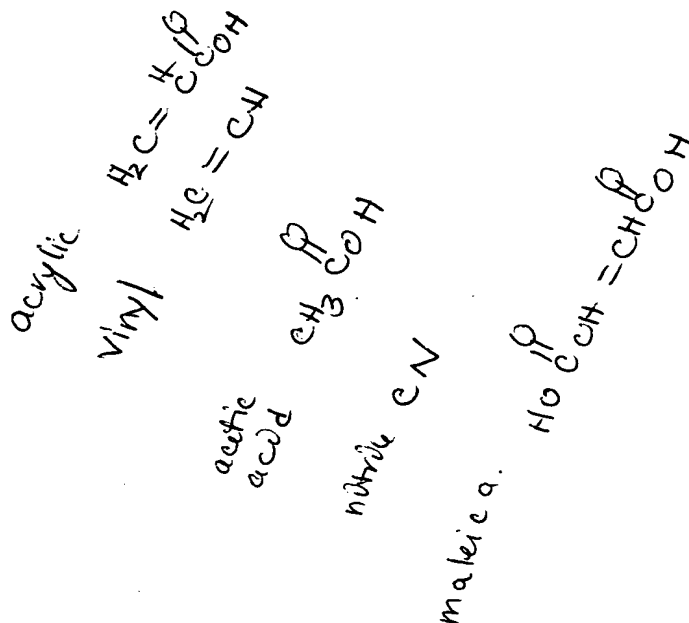 acrylic H2C=CHCOOH
vinyl H2C=CH
acetic acid CH3COOH
nitrile CN
maleic a. HOOCCH=CHCOOH